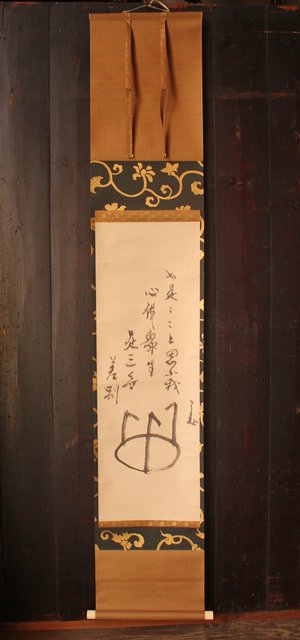 是〻〻と思ふ我
心佛衆生
是三無
差別